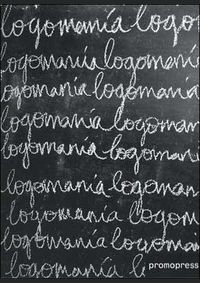 logomanía logo
logomanía logomaní
ogomanía logomanía
logomanía logoman
logomanía logomaní
logomanía logoman
logomanía logom
logomanía logoman
logomanía l
promopress